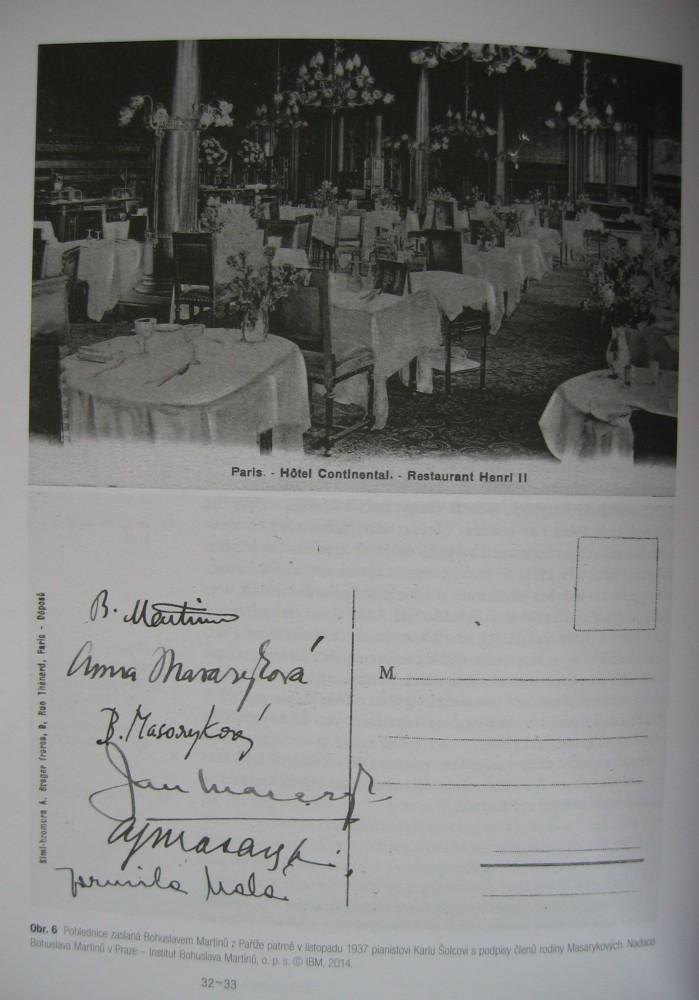 Paris. - Hôtel Continental. - Restaurant Henri II
Simi-bromure A. Breger frères, 9, Rue Thénard, Paris - Déposé
B. Martinu
Anna Masaryková
B. Masaryková
Jan Masaryk
Jarmila Malá
M.
Obr. 6 Pohlednice zaslaná Bohuslavem Martinů z Paříže patrně v listopadu 1937 pianistovi Karlu Šolcovi s podpisy členů rodiny Masarykových. Nadace
Bohuslava Martinů v Praze – Institut Bohuslava Martinů, o. p. s. © IBM, 2014.
32~33